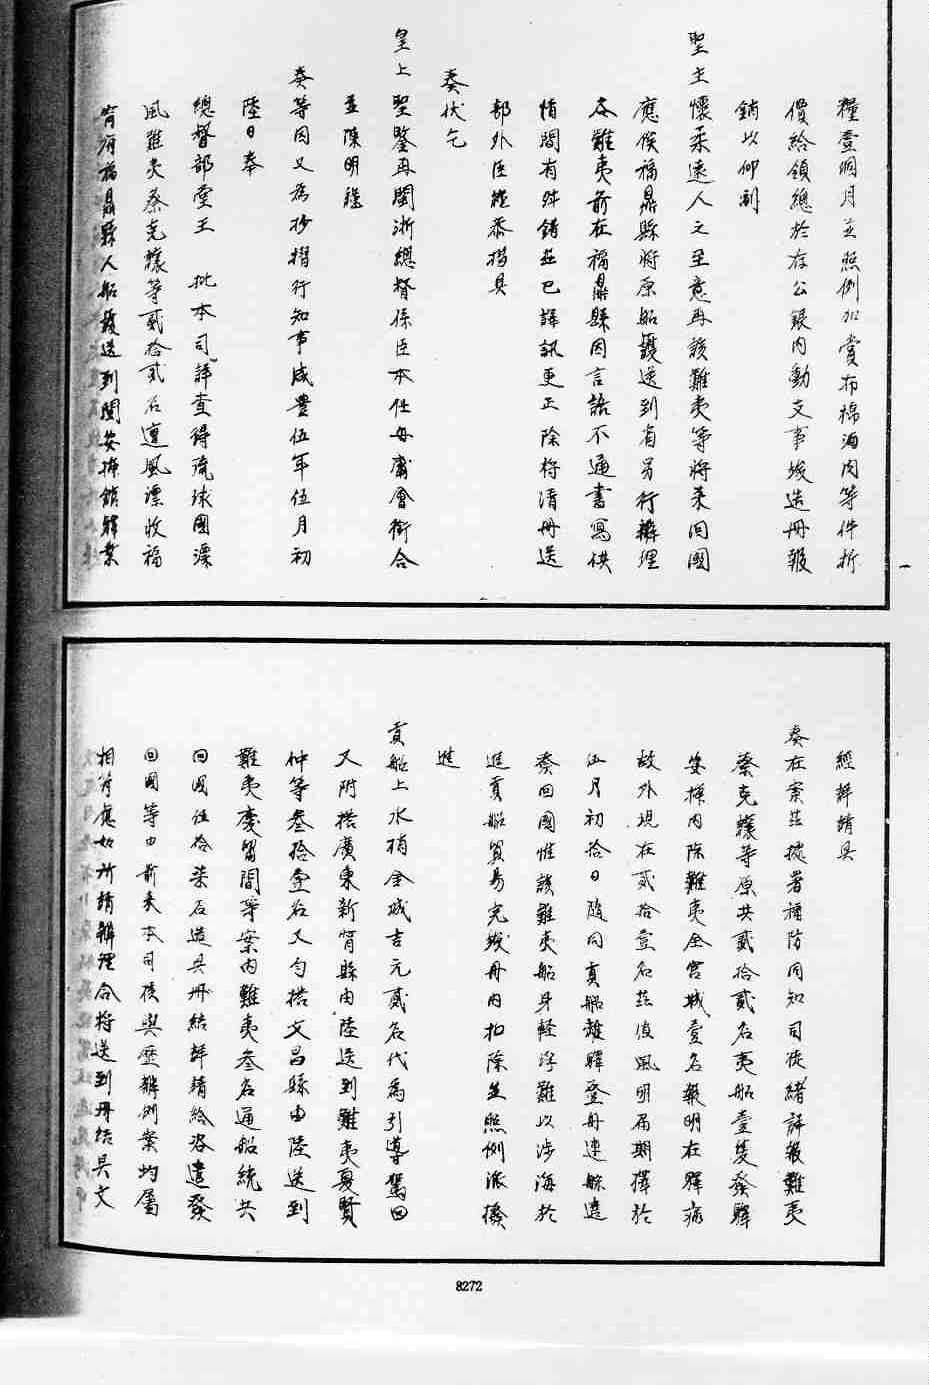 糧壹個月並照例加賞布棉酒肉等件折
價給領總於存公銀內動支事竣造冊報
銷以仰副
聖主懷柔遠人之至意再該難夷等將來回國
應俟福鼎縣將原船護送到省另行辦理
本難夷前在福鼎縣因言語不通書寫供
情間有舛錯茲已譯訊更正除將清冊送
部外臣謹恭摺具
奏伏乞
皇上聖鑒再閩浙總督係臣本任毋庸會銜合
並陳明謹
奏等因又為抄摺行知事咸豐伍年伍月初
陸日奉
總督部堂王 批本司詳查得琉球國漂
風難夷蔡克讓等貳拾貳名遭風漂收福
省有福鼎縣人船護送到閩安揷館驛業
經詳請具
奏在案茲據署福防同知司徒緒詳報難夷
蔡克讓等原共貳拾貳名夷船壹隻發驛
安揷內除難夷金宮城壹名報明在驛病
故外現在貳拾壹名茲值風明屆期擇於
伍月初拾日隨同貢船離驛登舟連䑸遣
發回國惟該難夷船身輕浮難以涉海於
進貢船貿易完竣冊內扣除並照例派撥
進
貢船上水稍金城吉元貳名代為引導駕回
又附搭廣東新寧縣由陸送到難夷夏賢
仲等叁拾壹名又勻搭文昌縣由陸送到
難夷慶留間等案內難夷叁名通船統共
回國伍拾柒名造具冊結詳請給咨遣發
回國等由前來本司復與歷辦例案均屬
相符應如所請辦理合將送到冊結具文
8272